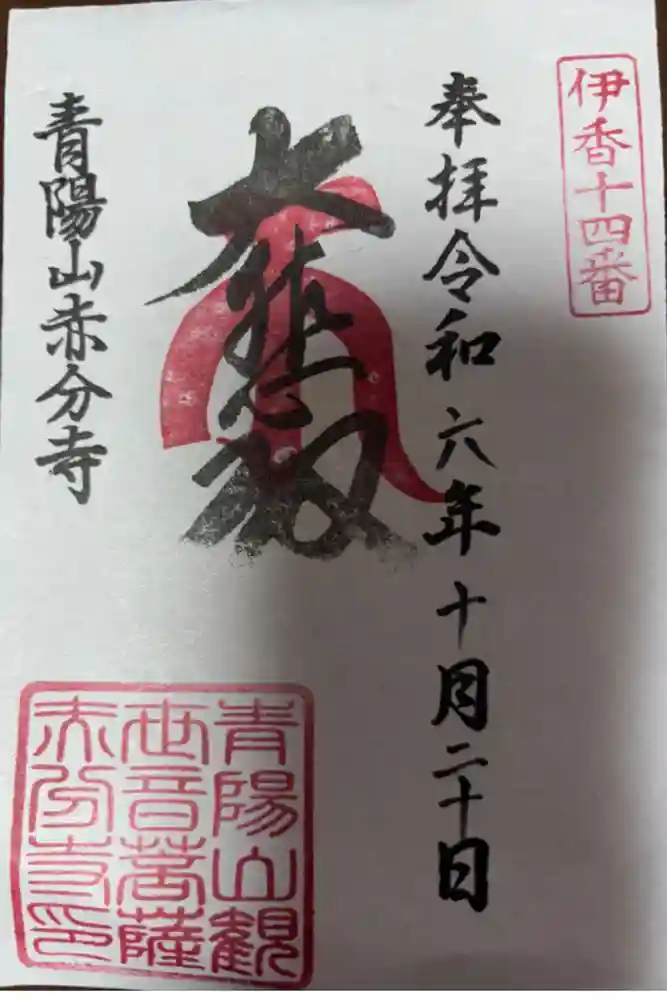 伊香十四番
奉拝令和六年十月二十日
大悲殿
青陽山赤分寺
青陽山観
世音菩薩
赤分寺印